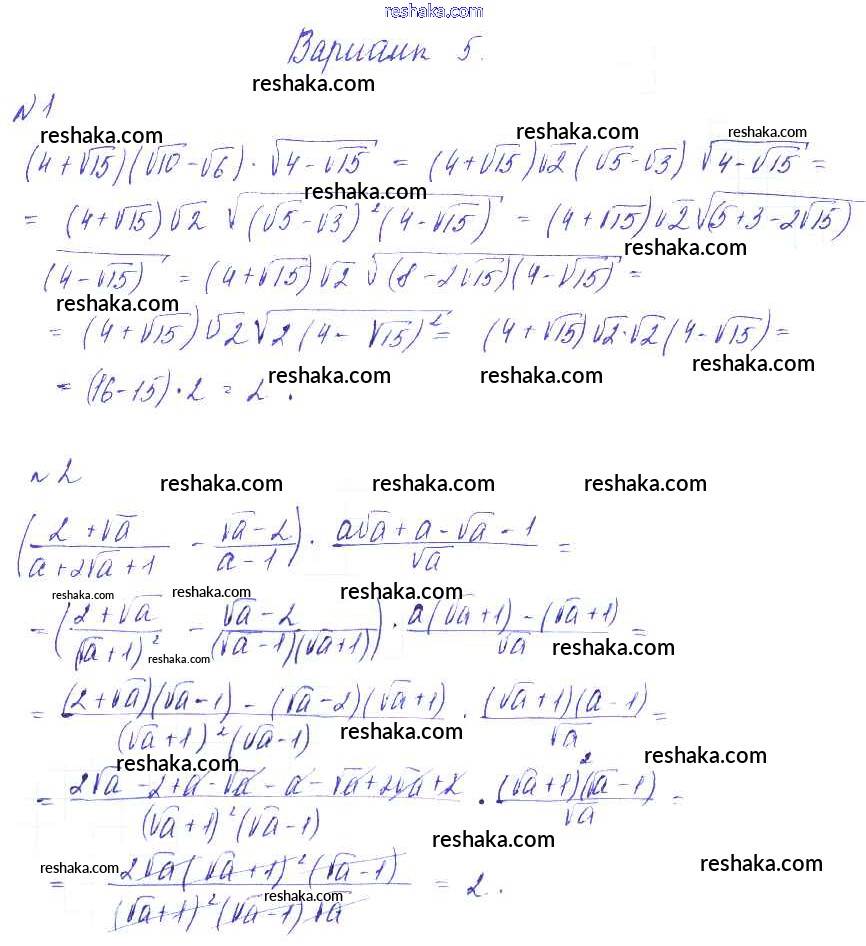 reshaka.com
Вариант 5.
reshaka.com
№1
reshaka.com reshaka.com reshaka.com
(4+√15)(√10-√6)·√(4-√15) = (4+√15)√2(√5-√3)√(4-√15) =
reshaka.com
= (4+√15)√2 √((√5-√3)²(4-√15)) = (4+√15)√2√((5+3-2√15)
reshaka.com
(4-√15)) = (4+√15)√2 √((8-2√15)(4-√15)) =
reshaka.com
= (4+√15)√2√(2(4-√15)²) = (4+√15)√2·√2(4-√15) =
reshaka.com reshaka.com reshaka.com
= (16-15)·2 = 2.
№2
reshaka.com reshaka.com reshaka.com
((2+√a)/(a+2√a+1) - (√a-2)/(a-1)) · (a√a+a-√a-1)/√a =
reshaka.com reshaka.com reshaka.com
= ((2+√a)/(√a+1)² - (√a-2)/((√a-1)(√a+1))) · (a(√a+1)-(√a+1))/√a =
reshaka.com reshaka.com
= ((2+√a)(√a-1)-(√a-2)(√a+1))/((√a+1)²(√a-1)) · ((√a+1)(a-1))/√a =
reshaka.com reshaka.com reshaka.com
= (2√a-2+a-√a-a-√a+2√a+2)/((√a+1)²(√a-1)) · ((√a+1)²(√a-1))/√a =
reshaka.com reshaka.com reshaka.com
= (2√a(√a+1)²(√a-1))/((√a+1)²(√a-1)√a) = 2.
reshaka.com